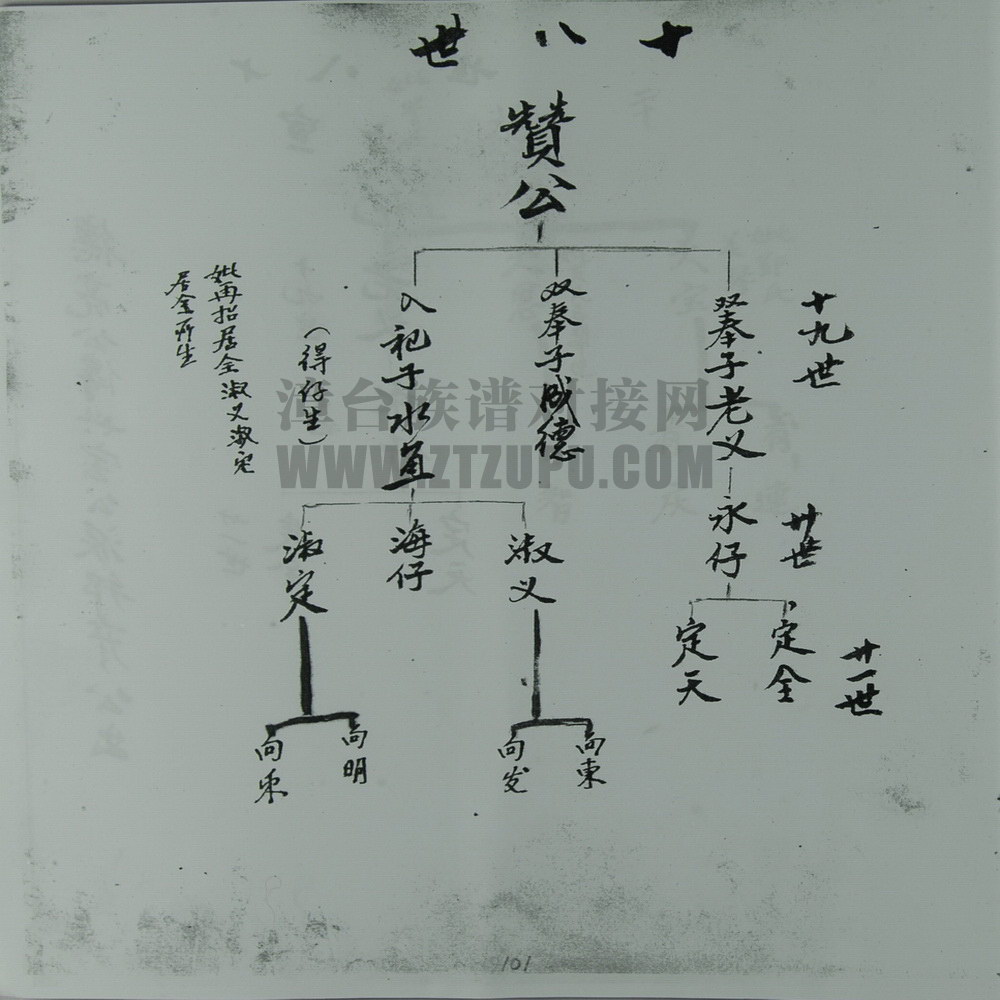 十八世
贊公
十九世
双奉子老义
双奉子成德
入祀子水道
(得仔生)
妣再招居全淑义淑定
居全所生
廿世
永仔
淑义
海仔
淑定
廿一世
定全
定天
向東
向发
向明
向东
漳台族谱对接网
WWW.ZTZUPU.COM
101